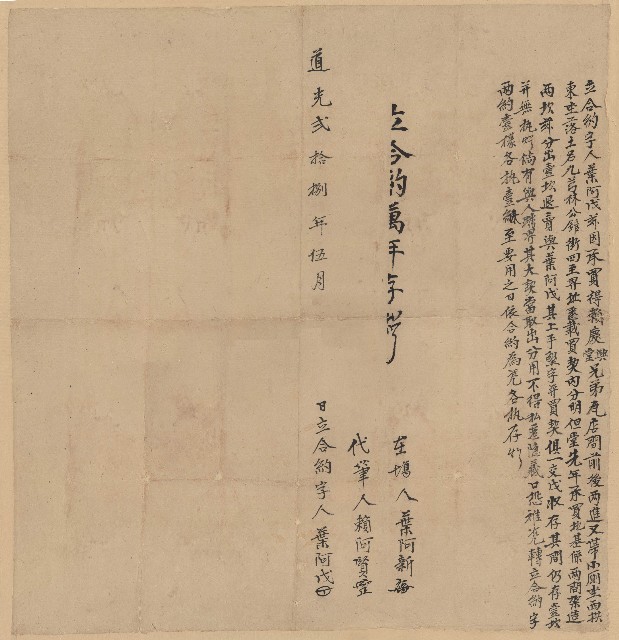 立合約字人葉阿戊茲因承買得賴慶興堂兄弟瓦店間前後兩進又帶小廁坐西拱
東坐落土名九芎林公館街四至界址悉載買契內分明但堂先年承買地基係兩間架造
兩坎茲分出壹坎退賣與葉阿戊其上手契字并買契俱一交戊收存其間仍存壹坎
并無執憑倘有與人其大契當取出分用不得私匿隱藏口恐難凭轉立合約字
兩約壹樣各執壹紙至要用之日依合約為凭各執存炤
立合約萬年字炤
在場人葉阿新
代筆人賴阿賢
道光貳拾捌年伍月 日立合約字人葉阿戊